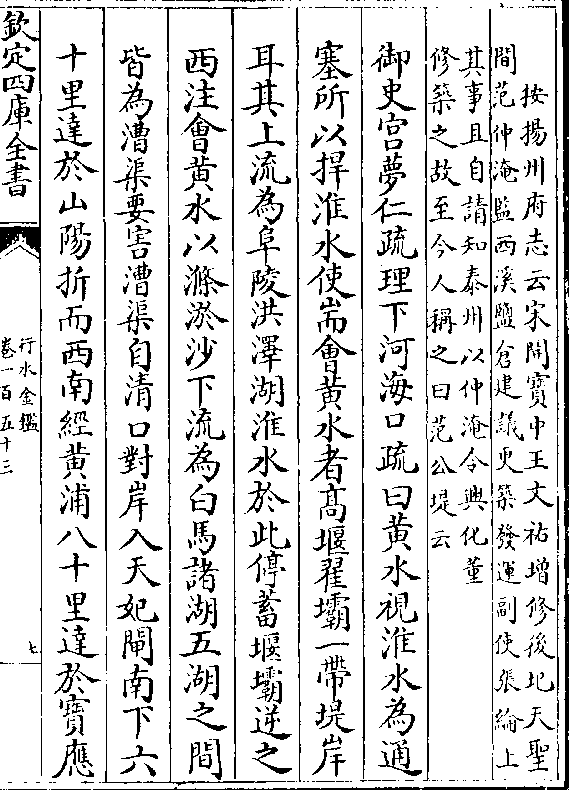 按揚州府志云宋開寶中王文祐增修後圮天聖
間范仲淹監西溪鹽倉建議更築發運副使張綸上
其事且自請知泰州以仲淹令興化董
修築之故至今人稱之曰范公堤云
御史宫夢仁疏理下河海口疏曰黄水視淮水為通
塞所以捍淮水使耑會黄水者髙堰翟壩一帶堤岸
耳其上流為阜陵洪澤湖淮水於此停蓄堰壩逆之
西注會黄水以滌淤沙下流為白馬諸湖五湖之間
皆為漕渠要害漕渠自清口對岸入天妃閘南下六
十里達於山陽折而西南經黄浦八十里達於寶應
欽定四庫全書
行水金鑑
卷一百五十三
七